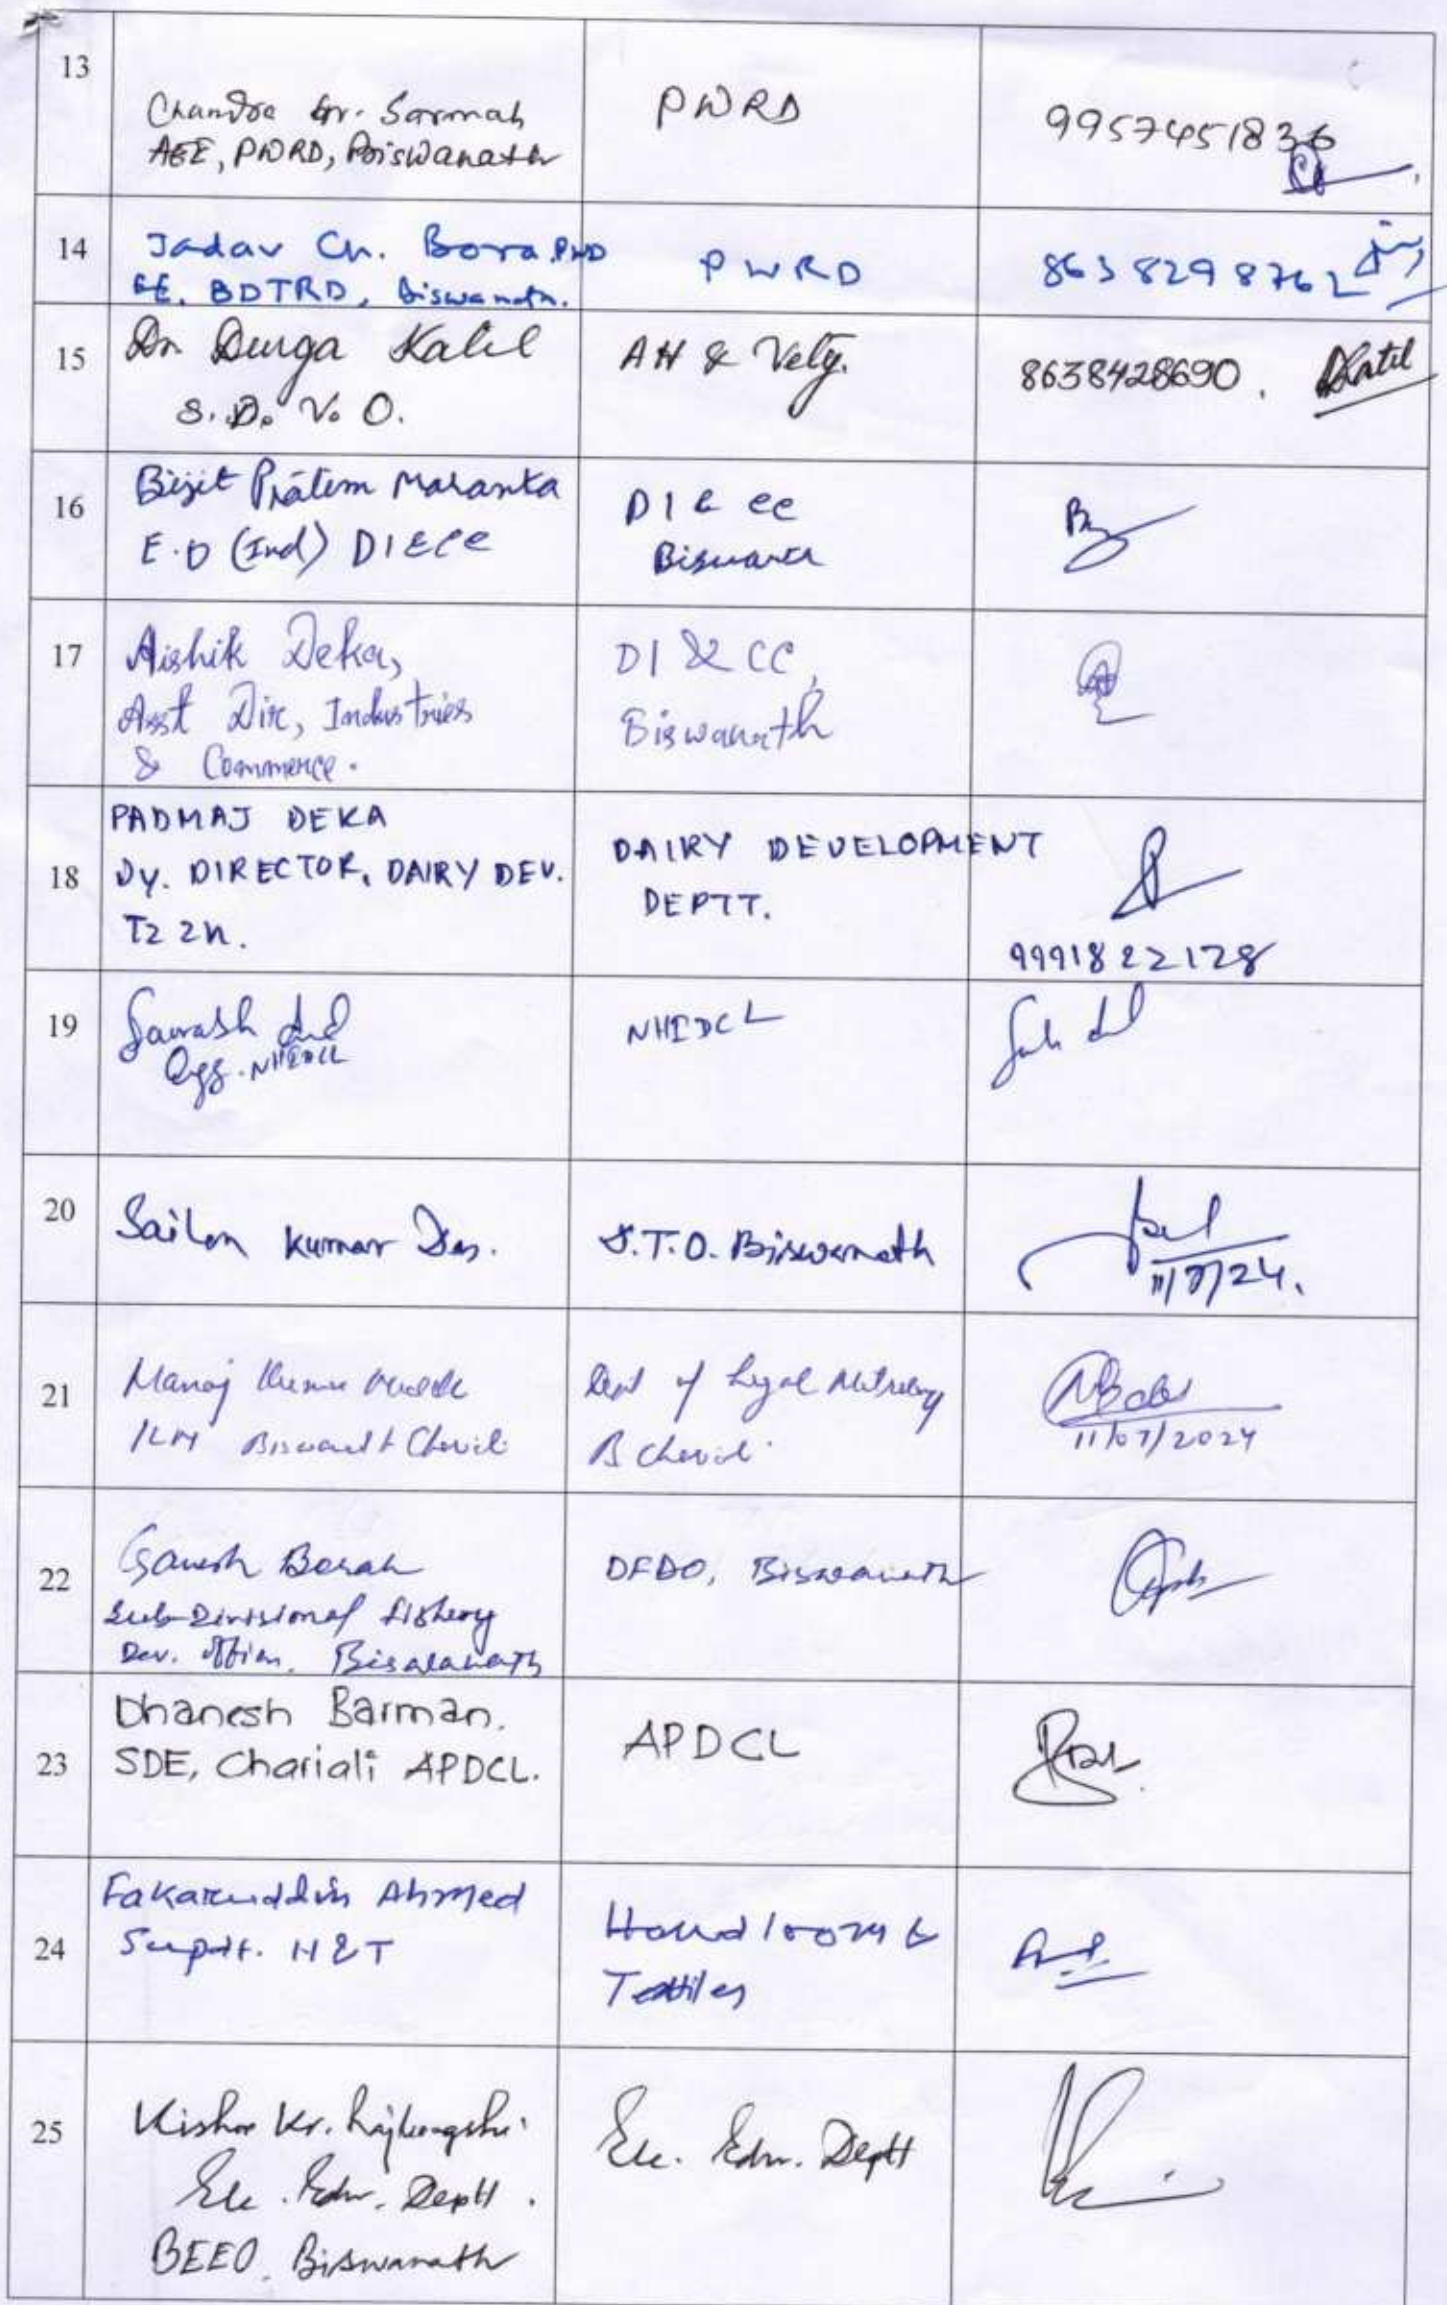 13
Chandra Kr. Sarmah
AEE, PWRD, Biswanath
PWRD
9957451836
14
Jadav Ch. Bora PWD
EE. BDTRD, Biswanath.
PWRD
8638298762
15
Dr. Durga Kalil
S.D.V.O.
AH & Vety.
8638428690.
16
Bijit Pratim
E.O (Ind) DI&CC
DI & CC
Biswanath
17
Aishik Deka,
Asst Dir, Industries
& Commerce.
DI & CC,
Biswanath
18
PADMAJ DEKA
DY. DIRECTOR, DAIRY DEV.
DAIRY DEVELOPMENT
DEPTT.
99918 22128
19
NHIDCL
NHIDCL
20
Kumar Das.
D.T.O. Biswanath
11/7/24.
21
Manoj Kumar
ILM Biswanath Chariali
Dept of Legal Metrology
B Chariali
11/07/2024
22
Ganesh Borah
Sub-Divisional Fishery
Dev. Officer, Biswanath
DFDO, Biswanath
23
Dhanesh Barman.
SDE, Chariali APDCL.
APDCL
24
Fakaruddin Ahmed
Supdt. H&T
Handloom &
Textiles
25
Kishor Kr. Rajbongshi
Ele. Edn. Deptt.
BEEO, Biswanath
Ele. Edn. Deptt